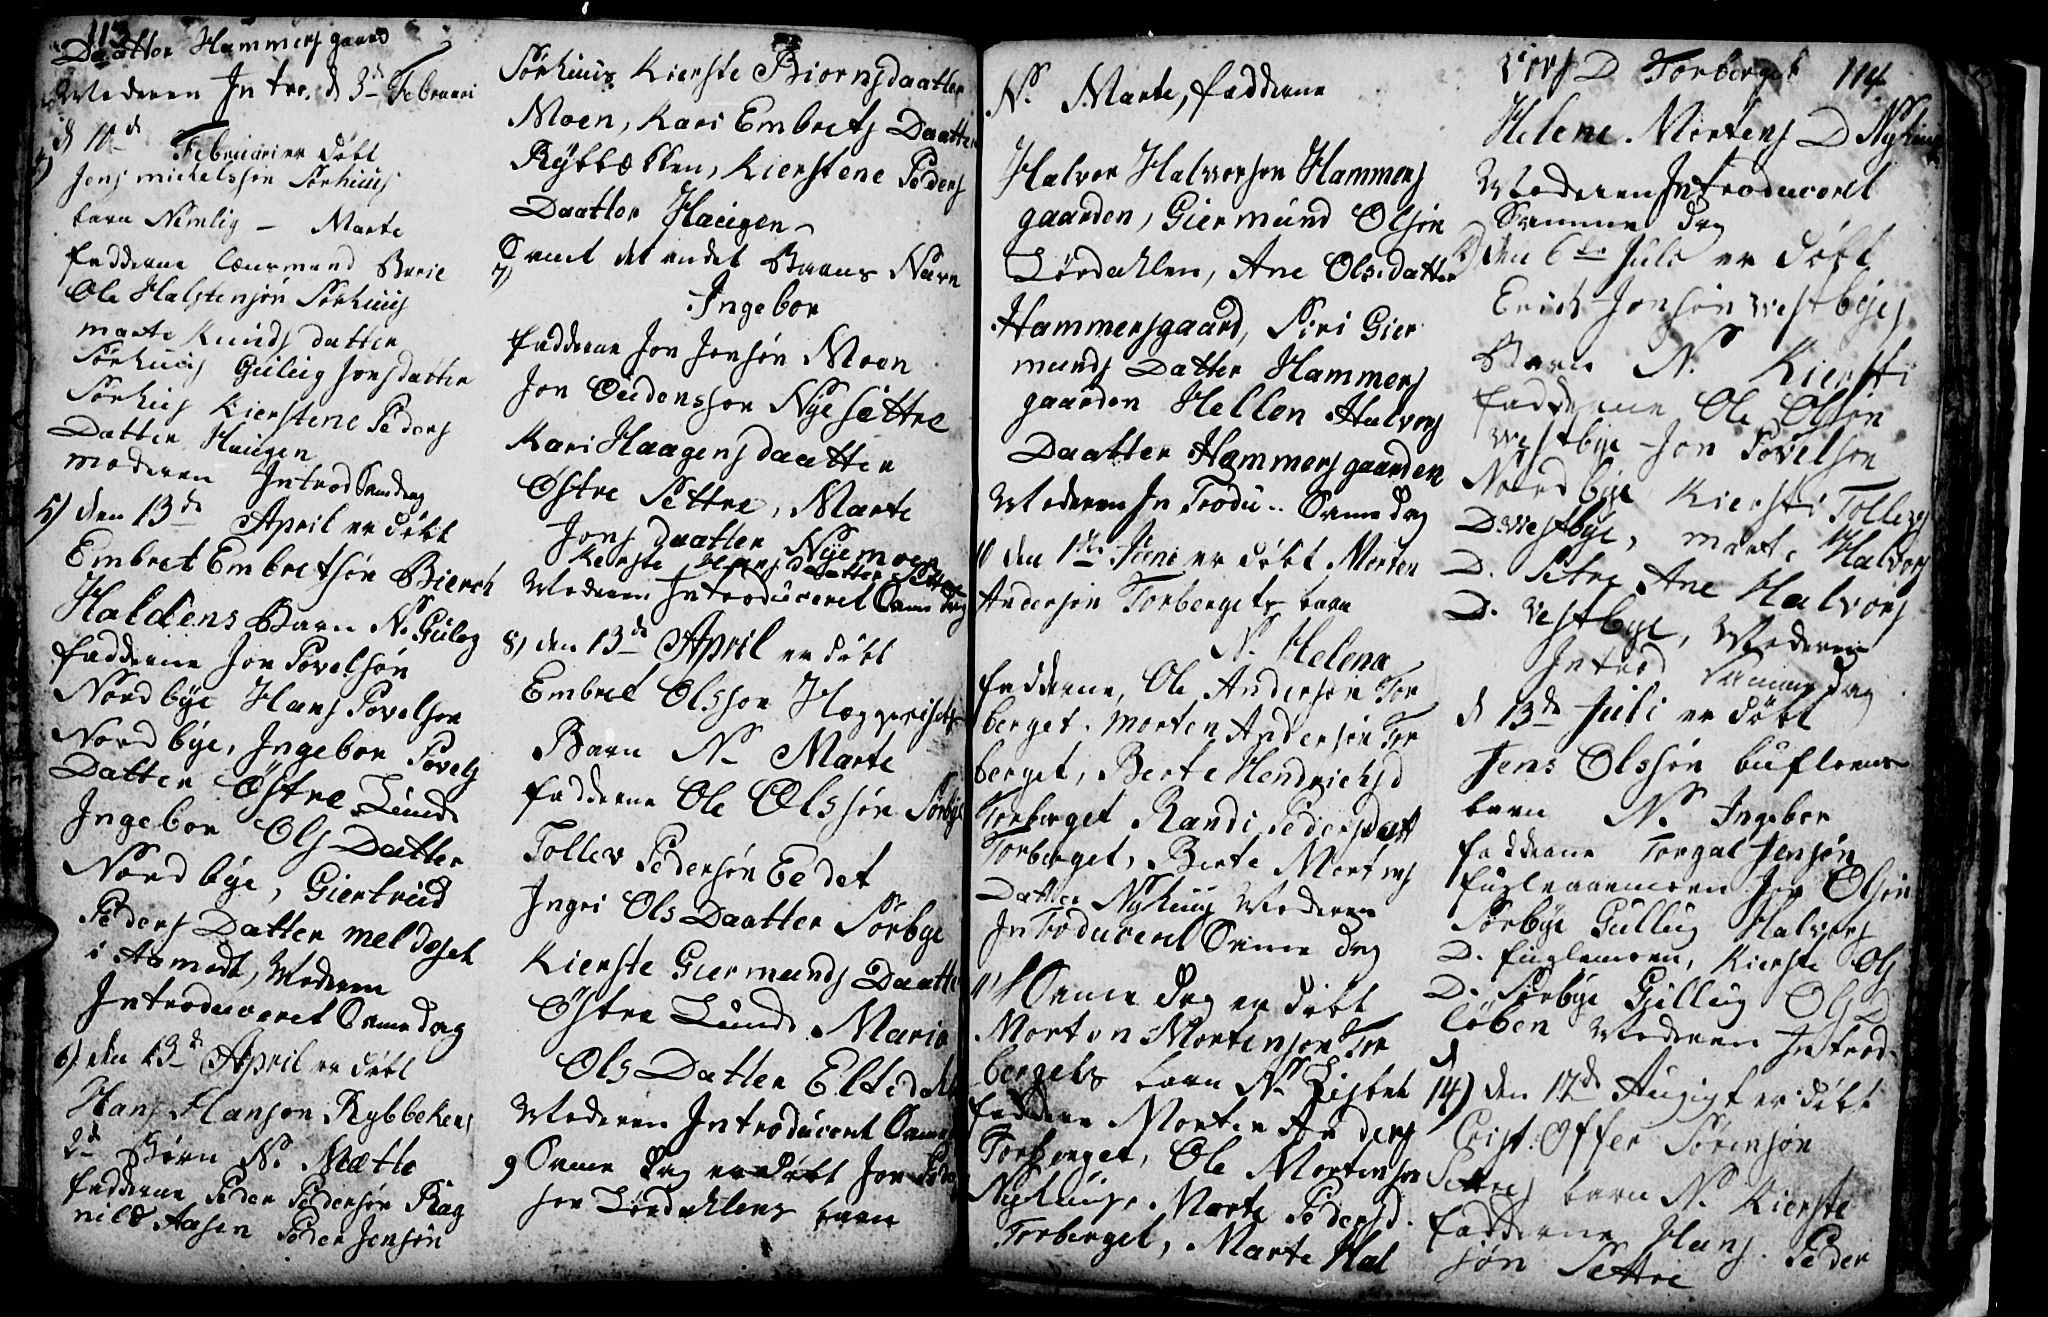 113
Daatter Hammersgaard
Moderen Intro. d 3de Februari
d 10de Februari er döbt
4)
Jens michelssön Sörhuus
barn Nemlig - Marte
fadderne Lensmand Berie
Ole Halstensön Sörhuus
marte Knuds datter
Sörhuus Gulug Jonsdatter
Sörhus Kierstene Peders
Datter Haugen
moderen Introd Samdag
5) den 13de April er döbt
Embret Embretsön Bierck
Haldens Barn N. Guleg
fadderne Jon Povelsön
Nordbÿe Hans Povelsøn
Nordbÿe, Ingebor Povels
Datter Østre Lund
Ingebor Ols Datter
Nordbÿe, Giertrud
Peders Datter meldeset
i Aamodt, Moderen
Introduceret Samedag
6) den 13de April er döbt
Hans Hansøn Rybbekens
2de Börn N. Mætte
fadderne Peder Pedersön Rag
nild Aasen Peder Jensön
Sörhuus Kierste Biornsdaatter
Moen, Kari Embrets Daatter
Rÿbbekken, Kierstene Peders
Daatter Haugen
Samt det andet Barns Navn
7)
Ingebor
fadderne Jon Jonsön Moen
Jon Oudenssøn Nÿesættre
Kari Haagens daatter
Østre Settre, Marte
Jons daatter Nyemoen
Kierste daatter
Moderen Introduceret Samedag
8) den 13de April er döbt
Embret Olssøn
Barn N. Marte
fadderne Ole Olssön Sörbÿe
Tollev Pedersön Eedet
Ingri Ols Daatter Sörbÿe
Kierste Giermunds Daatter
Østre Lund, Maria
Ols Datter
Moderen Introducent Same
9 Same dag er döbt Jon
søn Lördahlens barn
N. Marte, fadderne
Halvor Halvorsøn Hammers
gaarden, Giermund Olsön
Lördahlen, Ane Olsdatter
Hammersgaard, Siri Gier
munds Datter Hammers
gaarden Hellen Halvors
Daatter Hammersgaarden
Moderen In Trodu.. Same dag
10 den 1te Juni er döbt Morten
Andersön Torbergets barn
N. Helena
fadderne, Ole Andersön Tor
berget. Morten Andersön Tor
berget, Berte Hendrichsd
Torberget Randi Pedersdatt
Torberget, Berte Mortens
Datter Nyhuus Moderen
Introduceret Same dag
11) Same dag er döbt
Morten Mortensøn Tor
bergets barn N. Lisbet
faddere Morten Anders
Torberget, Ole Mortensøn
Nyhuus, Marte Pedersd.
Torberget, Marte Hal
vors D Torberget 114
Helene Mortens D Nÿhuus
Moderen Introduceret
Samme dag
den 6te Juli er döbt
Erich Jonsön Vestbÿes
Barn N. Kiersti
fadderne Ole Olsön
Vestbÿe Jon Povelsøn
Nordbÿe Kiersti Tollevs
D. Vestbÿe, marte Halvors
D. Setre Ane Halvors
D. Vestbÿe, Moderen
Introd Samme dag
d 13de Juli er döbt
Jens Olssön
barn N. Ingebor
fadderne Torgal Jensön
Jon Olsön
Sörbÿe Gullug Halvors
D. fuglemoen, Kierste Ols
D. Sörbÿe Gullug Ols D
Löben Moderen Introd.
d
14) den 17de August er döbt
Crist.Offer Sörensön
Settres barn N. Kierste
fadderne Hans Peder
søn Settre